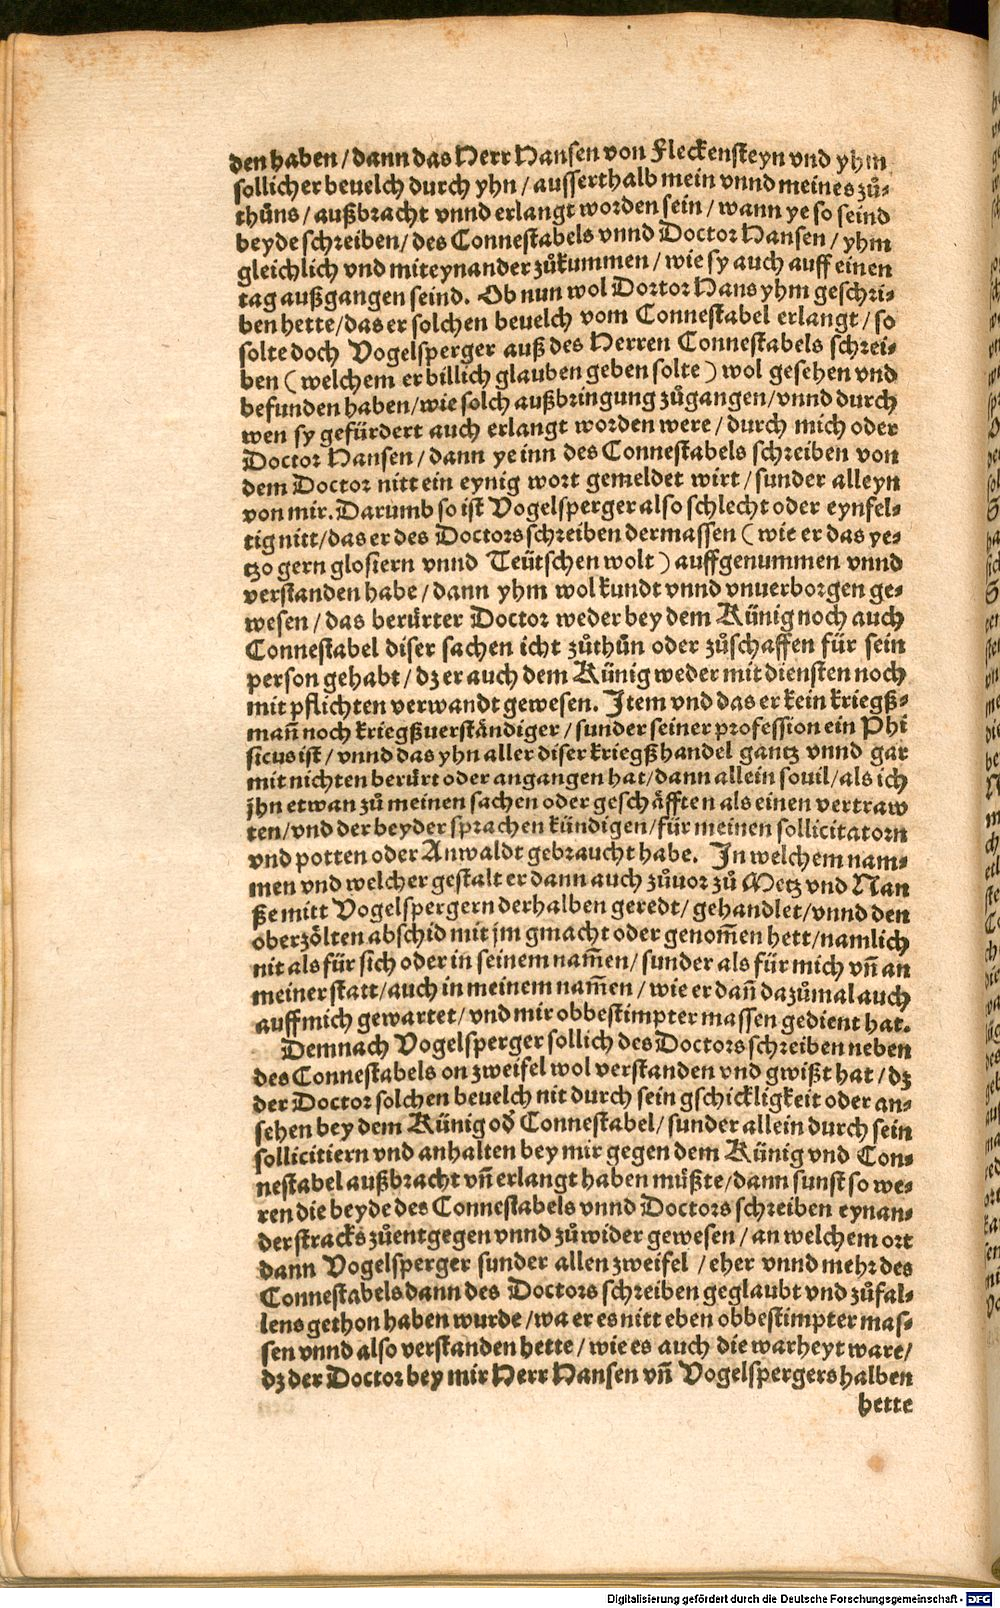 den haben / dann das Herr Hansen von Fleckensteyn vnd yhm
sollicher beuelch durch yhn / ausserthalb mein vnnd meines zů-
thůns / außbracht vnnd erlangt worden sein / wann ye so seind
beyde schreiben / des Connestabels vnnd Doctor Hansen / yhm
gleichlich vnd miteynander zůkummen / wie sy auch auff einen
tag außgangen seind. Ob nun wol Dortor Hans yhm geschri-
ben hette / das er solchen beuelch vom Connestabel erlangt / so
solte doch Vogelsperger auß des Herren Connestabels schrei-
ben ( welchem er billich glauben geben solte ) wol gesehen vnd
befunden haben / wie solch außbringung zůgangen / vnnd durch
wen sy gefürdert auch erlangt worden were / durch mich oder
Doctor Hansen / dann ye inn des Connestabels schreiben von
dem Doctor nitt ein eynig wort gemeldet wirt / sunder alleyn
von mir. Darumb so ist Vogelsperger also schlecht oder eynfel-
tig nitt / das er des Doctors schreiben dermassen ( wie er das ye-
tzo gern glosiern vnnd Teütschen wolt ) auffgenummen vnnd
verstanden habe / dann yhm wol kundt vnnd vnuerborgen ge-
wesen / das berürter Doctor weder bey dem Künig noch auch
Connestabel diser sachen icht zůthůn oder zůschaffen für sein
person gehabt / dz er auch dem Künig weder mit diensten noch
mit pflichten verwandt gewesen. Item vnd das er kein kriegß-
mañ noch kriegßuerständiger / sunder seiner profession ein Phi
sicus ist / vnnd das yhn aller diser kriegßhandel gantz vnnd gar
mit nichten berürt oder angangen hat / dann allein souil / als ich
jhn etwan zů meinen sachen oder geschäfften als einen vertraw
ten / vnd der beyder sprachen kündigen / für meinen sollicitatorn
vnd potten oder Anwaldt gebraucht habe. In welchem nam-
men vnd welcher gestalt er dann auch zůuor zů Metz vnd Nan
ße mitt Vogelspergern derhalben geredt / gehandlet / vnnd den
oberzölten abschid mit jm gmacht oder genom̃en hett / namlich
nit als für sich oder in seinem nam̃en / sunder als für mich vñ an
meiner statt / auch in meinem nam̃en / wie er dañ dazůmal auch
auff mich gewartet / vnd mir obbestimpter massen gedient hat.
Demnach Vogelsperger sollich des Doctors schreiben neben
des Connestabels on zweifel wol verstanden vnd gwißt hat / dz
der Doctor solchen beuelch nit durch sein gschickligkeit oder an-
sehen bey dem Künig oď Connestabel / sunder allein durch sein
sollicitiern vnd anhalten bey mir gegen dem Künig vnd Con-
nestabel außbracht vñ erlangt haben müßte / dann sunst so we-
ren die beyde des Connestabels vnnd Doctors schreiben eynan-
der stracks zůentgegen vnnd zůwider gewesen / an welchem ort
dann Vogelsperger sunder allen zweifel / eher vnnd mehr des
Connestabels dann des Doctors schreiben geglaubt vnd zůfal-
lens gethon haben wurde / wa er es nitt eben obbestimpter mas-
sen vnnd also verstanden hette / wie es auch die warheyt ware /
dz der Doctor bey mir Herr Hansen vñ Vogelspergers halben
hette
Digitalisierung gefördert durch die Deutsche Forschungsgemeinschaft - DFG